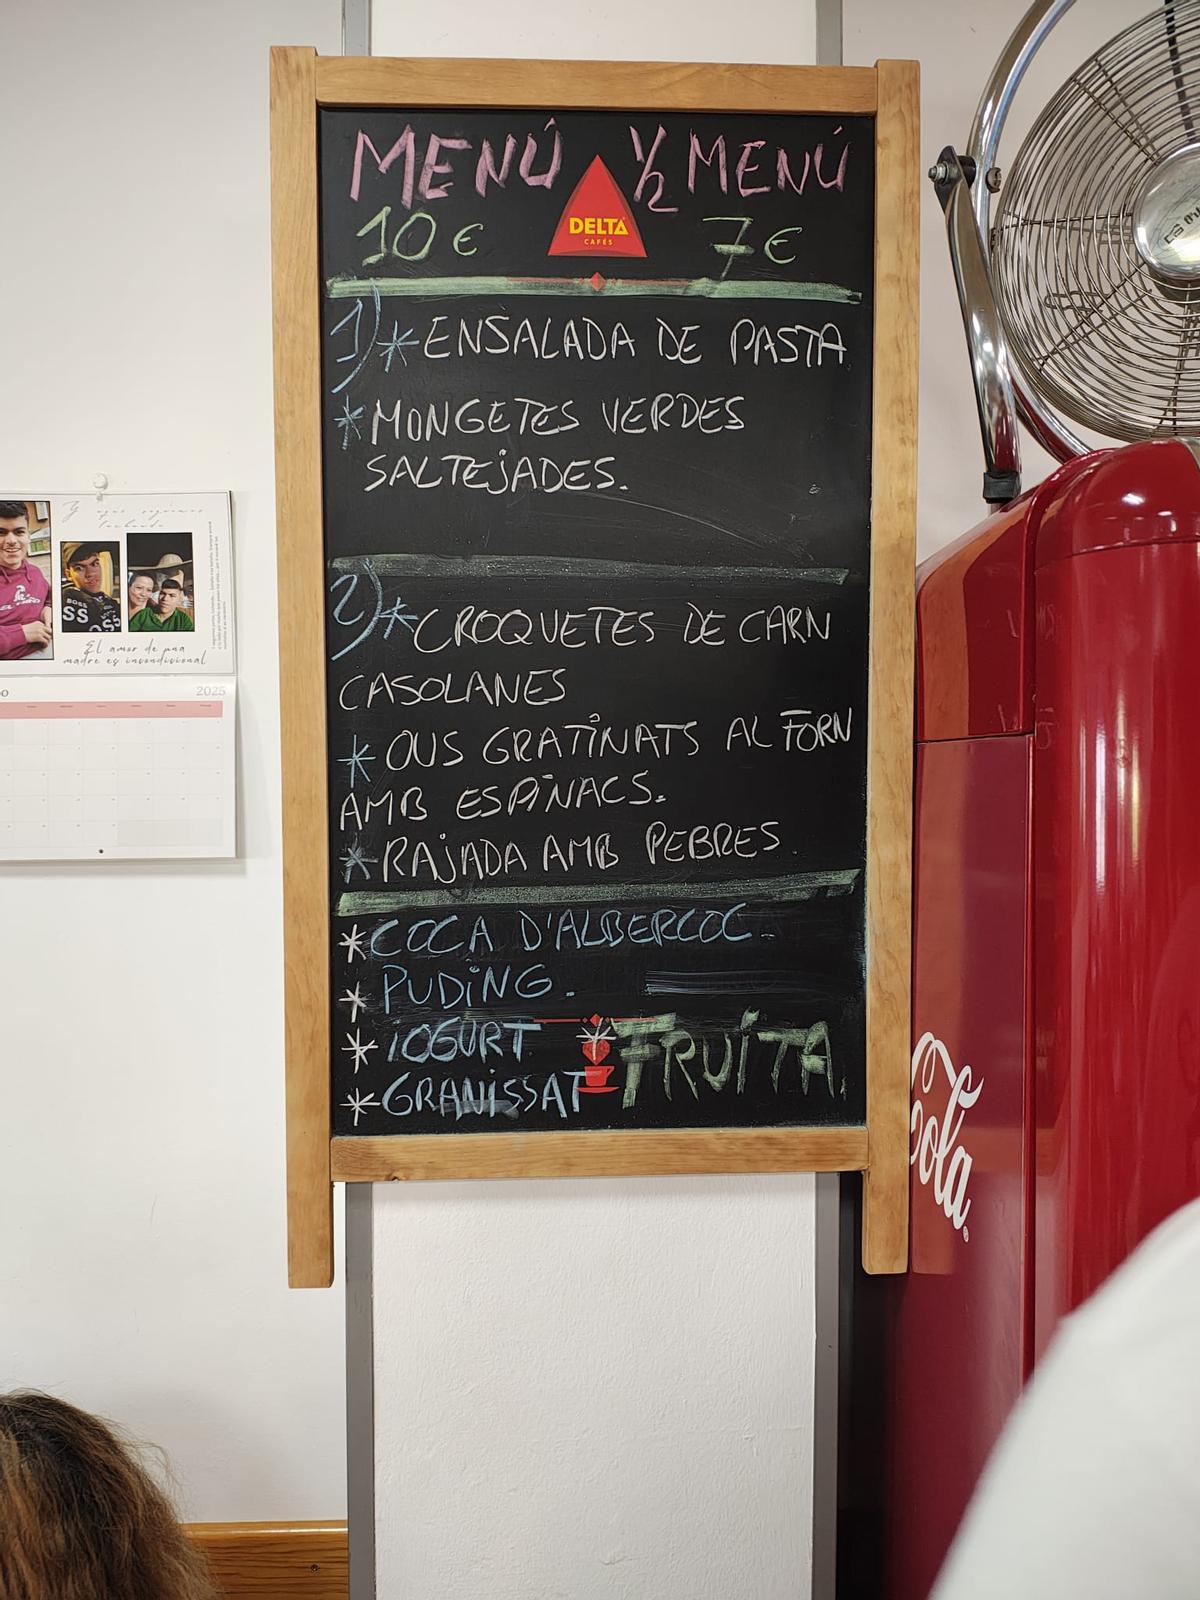 MENÚ ½ MENÚ
10 € 7 €
DELTA
CAFÉS
1) * ENSALADA DE PASTA
* MONGETES VERDES
SALTEJADES.
2) * CROQUETES DE CARN
CASOLANES
* OUS GRATINATS AL FORN
AMB ESPINACS.
* RAJADA AMB PEBRES.
* COCA D'ALBERCOC.
* PUDING.
* IOGURT * FRUITA.
* GRANISSAT
El amor de una
madre es incondicional
2025
BOSS
Cola